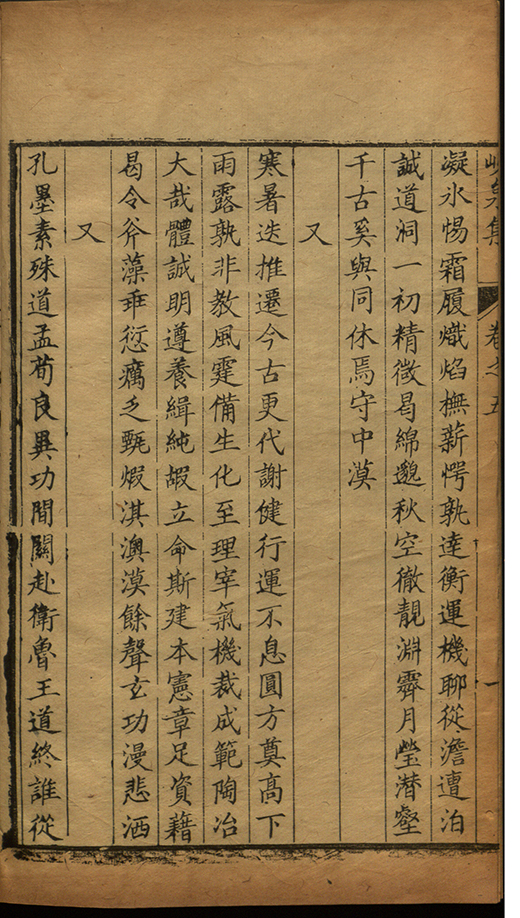 峴泉集
卷之五
一
凝氷惕霜履熾焰撫薪愕孰達衡運機聊從澹遭泊
誠道洞一初精微曷綿邈秋空徹靚淵霽月瑩潜壑
千古奚與同休焉守中漠
又
寒暑迭推遷今古更代謝健行運不息圓方奠高下
雨露孰非教風霆備生化至理宰氣機裁成範陶冶
大哉體誠明遵養緝純嘏立命斯建本憲章足資藉
曷令斧藻乖愆癘乏甄煆淇澳漠餘聲玄功漫悲洒
又
孔墨素殊道孟荀良異功間關赴衛魯王道終誰從